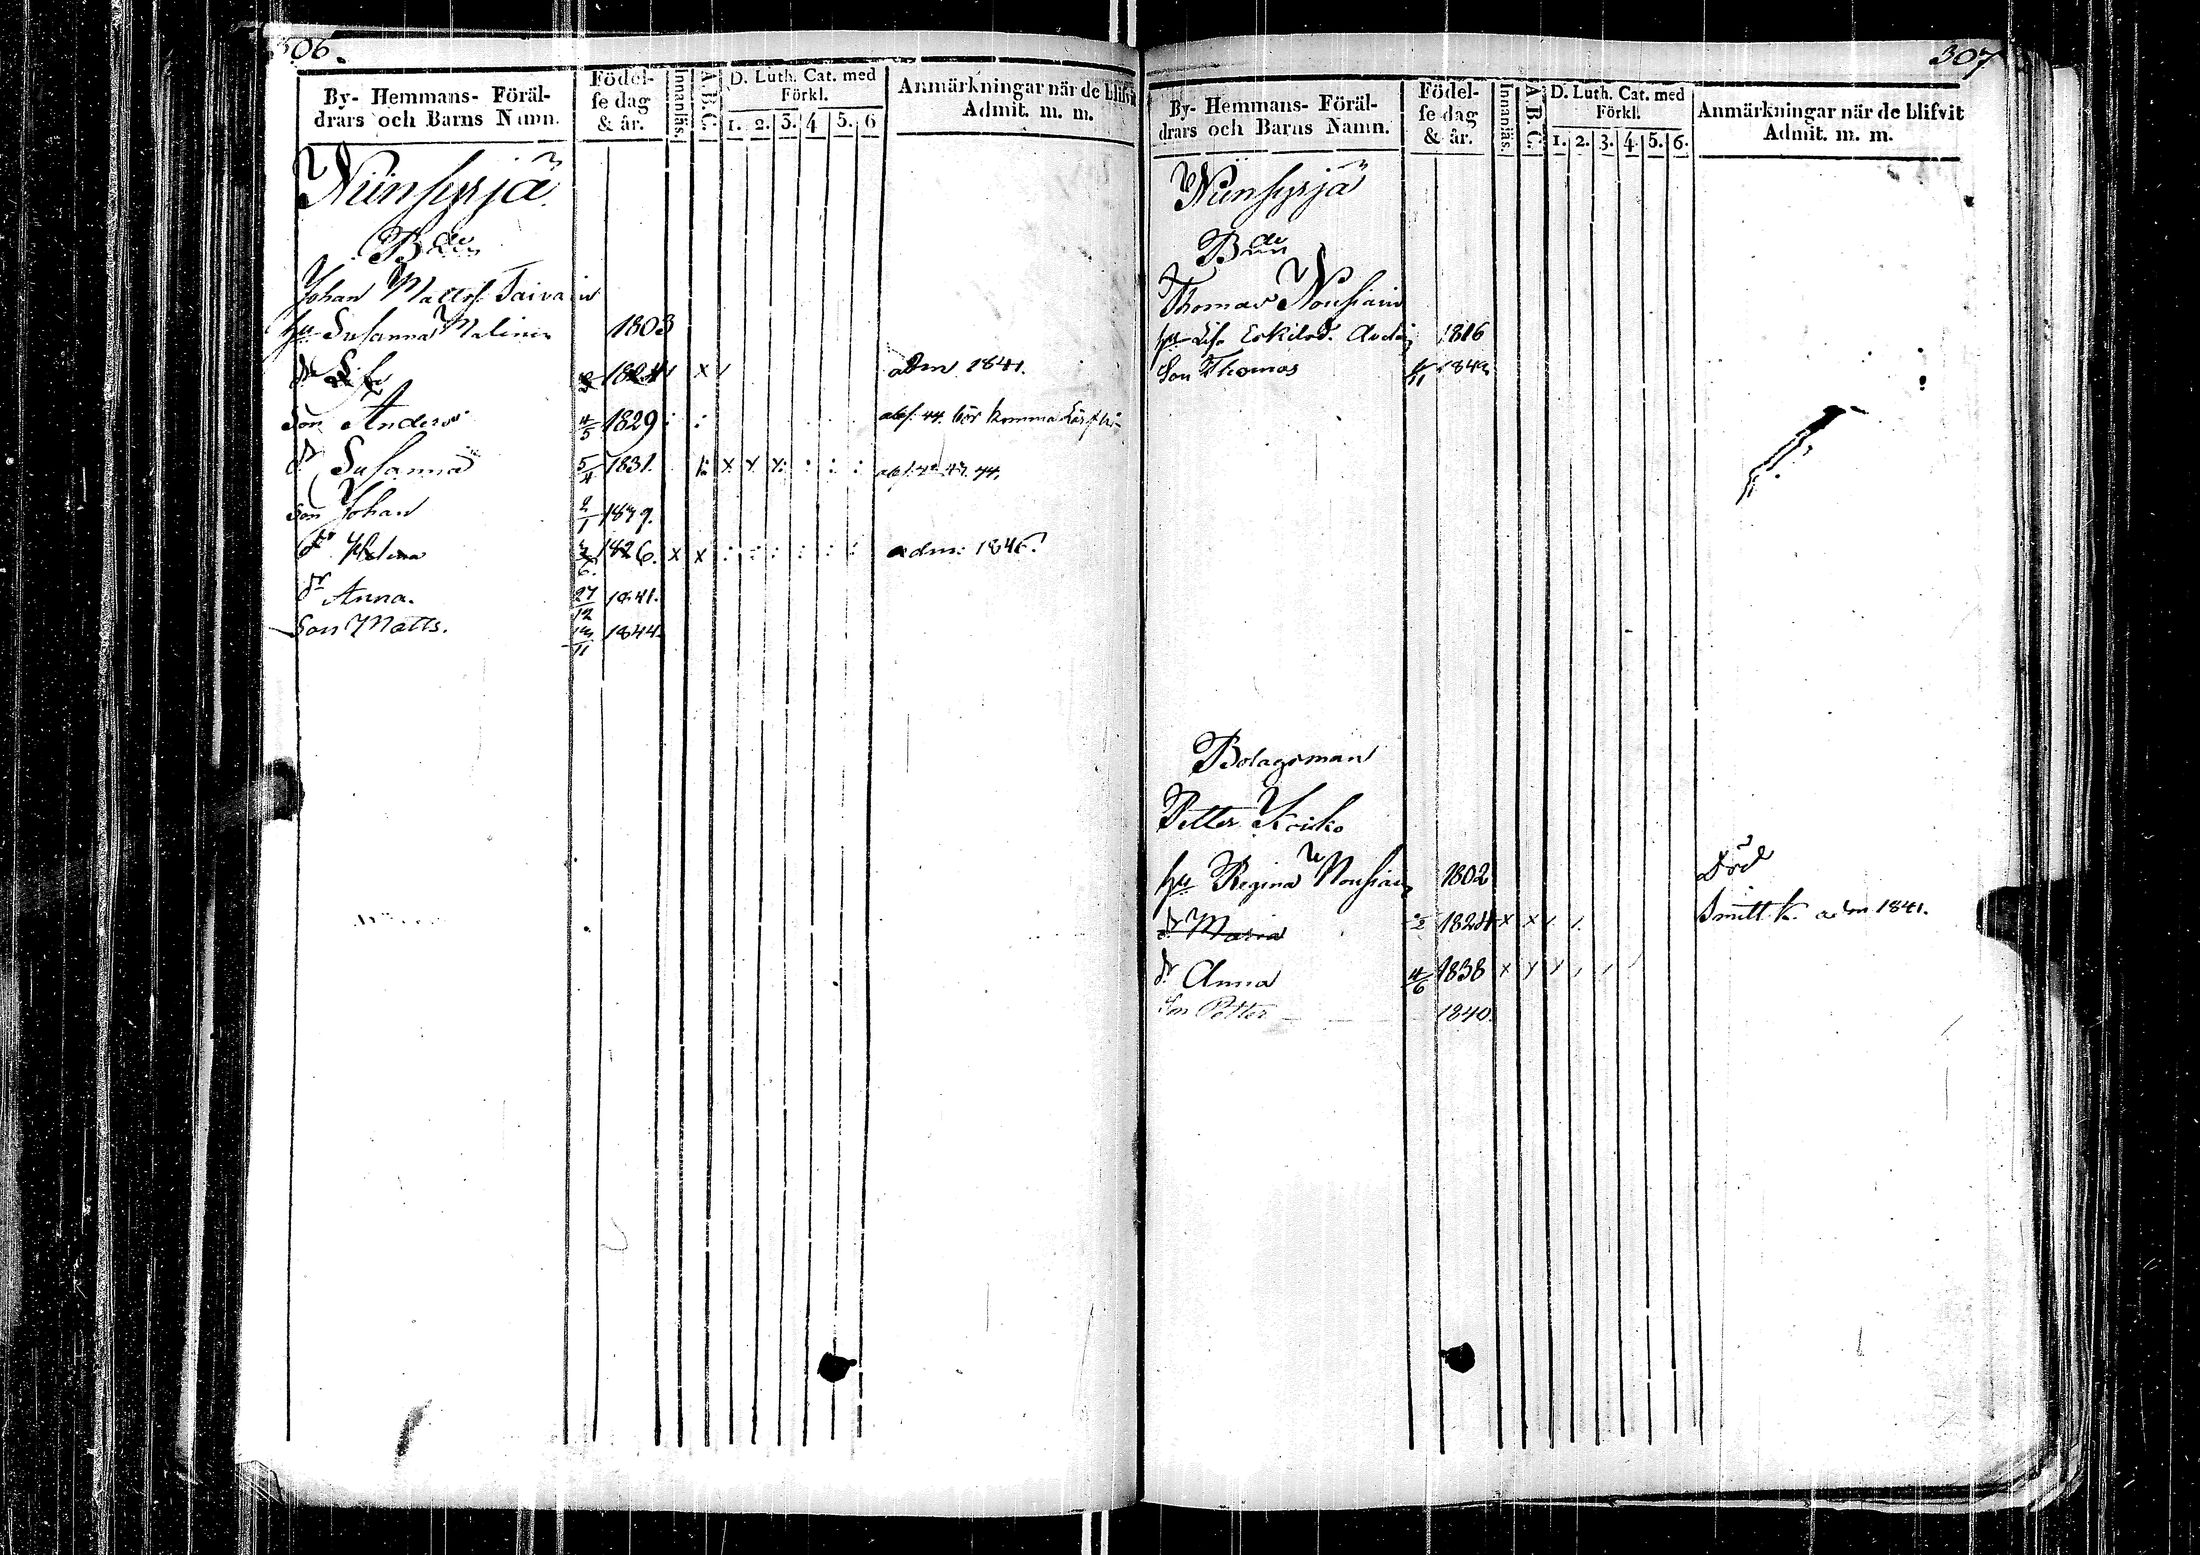 306.
By- Hemmans- Föräl-
drars och Barns Namn.
Födel-
se dag
& år.
Innanläs.
A.B.C.
D. Luth. Cat. med
Förkl.
1. 2. 3. 4 5. 6
Anmärkningar när de blifvit
Admit. m. m.
Bden
Johan Matts. Taivain
hu Susanna Malinen 1803
dr Lisa 1824 x adm 1841.
Son Anders 4/5 1829 abs. 44. bör komma
dr Susanna 5/4 1831. x x x : : : 44.
Son Johan 2/1 1839.
dr Helena 1826. x x : : : : : : adm: 1846.
dr Anna. 27/12 1841.
Son Matts. 13/11 1844.
307
By- Hemmans- Föräl-
drars och Barns Namn.
Födel-
se dag
& år.
Innanläs.
A.B.C.
D. Luth. Cat. med
Förkl.
1. 2. 3. 4. 5. 6.
Anmärkningar när de blifvit
Admit. m. m.
Bden
Thomas Nousiain
hu Lisa Eskilsd. 1816
Son Thomas
Bolagsman
Petter Koiko
hu Regina Nousiain 1802 Död
dr Maria 1824 x x adm 1841.
dr Anna 4/6 1838 x x x
Son Petter 1840.